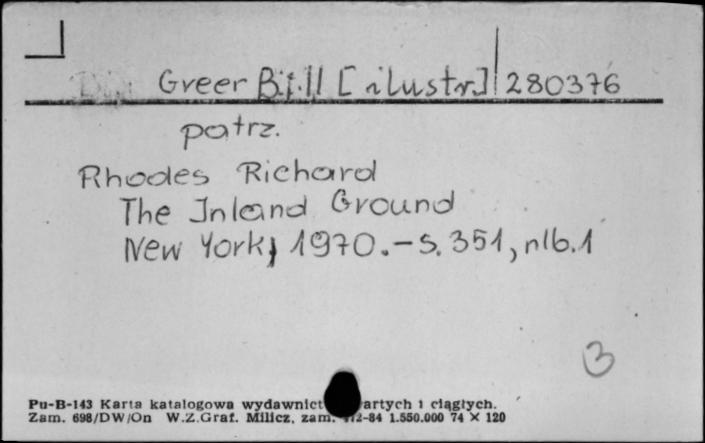 Greer Bill [ilustr.] 280376
patrz.
Rhodes Richard
The Inland Ground
New York, 1970.-S. 351, nlb.1
3
Pu-B-143 Karta katalogowa wydawnict artych i ciągłych.
Zam. 698/DW/On W.Z.Graf. Milicz, zam. 112-84 1.550.000 74 X 120